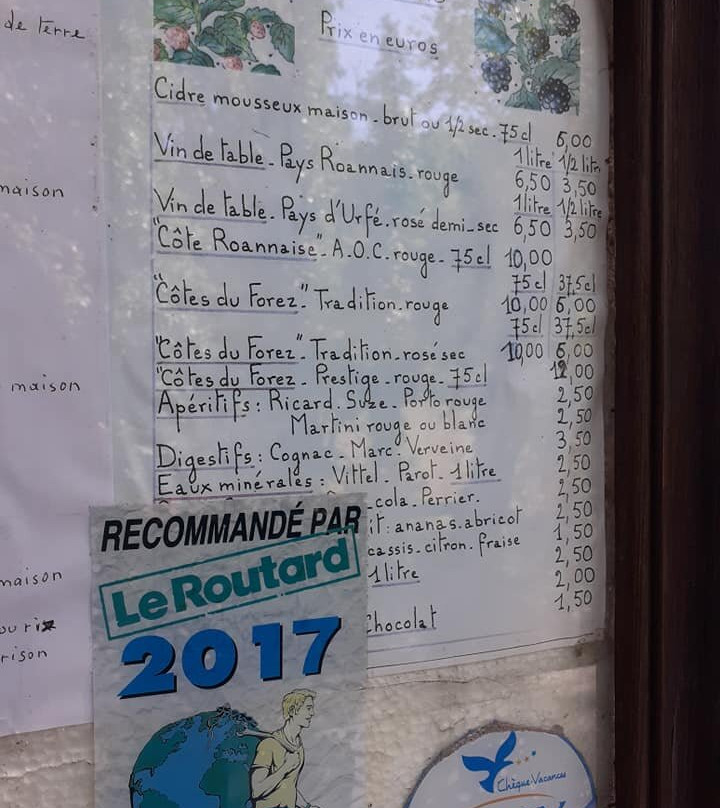 de terre
maison
maison
maison
ou riz
Prix en euros
Cidre mousseux maison - brut ou 1/2 sec - 75 cl 6,00
1 litre 1/2 litre
Vin de table - Pays Roannais - rouge 6,50 3,50
1 litre 1/2 litre
Vin de table - Pays d'Urfé - rosé demi-sec 6,50 3,50
"Côte Roannaise" A.O.C. rouge - 75 cl 10,00
75 cl 37,5 cl
"Côtes du Forez" Tradition - rouge 10,00 6,00
75 cl 37,5 cl
"Côtes du Forez" - Tradition - rosé sec 10,00 6,00
"Côtes du Forez - Prestige - rouge - 75 cl 12,00
Apéritifs : Ricard . Suze - Porto rouge 2,50
Martini rouge ou blanc 2,50
Digestifs : Cognac - Marc - Verveine 3,50
Eaux minérales : Vittel - Parot - 1 litre 2,50
-cola . Perrier. 2,50
it : ananas . abricot 2,50
cassis . citron . fraise 1,50
1 litre 2,50
2,00
Chocolat 1,50
RECOMMANDÉ PAR
Le Routard
2017
Chèque Vacances